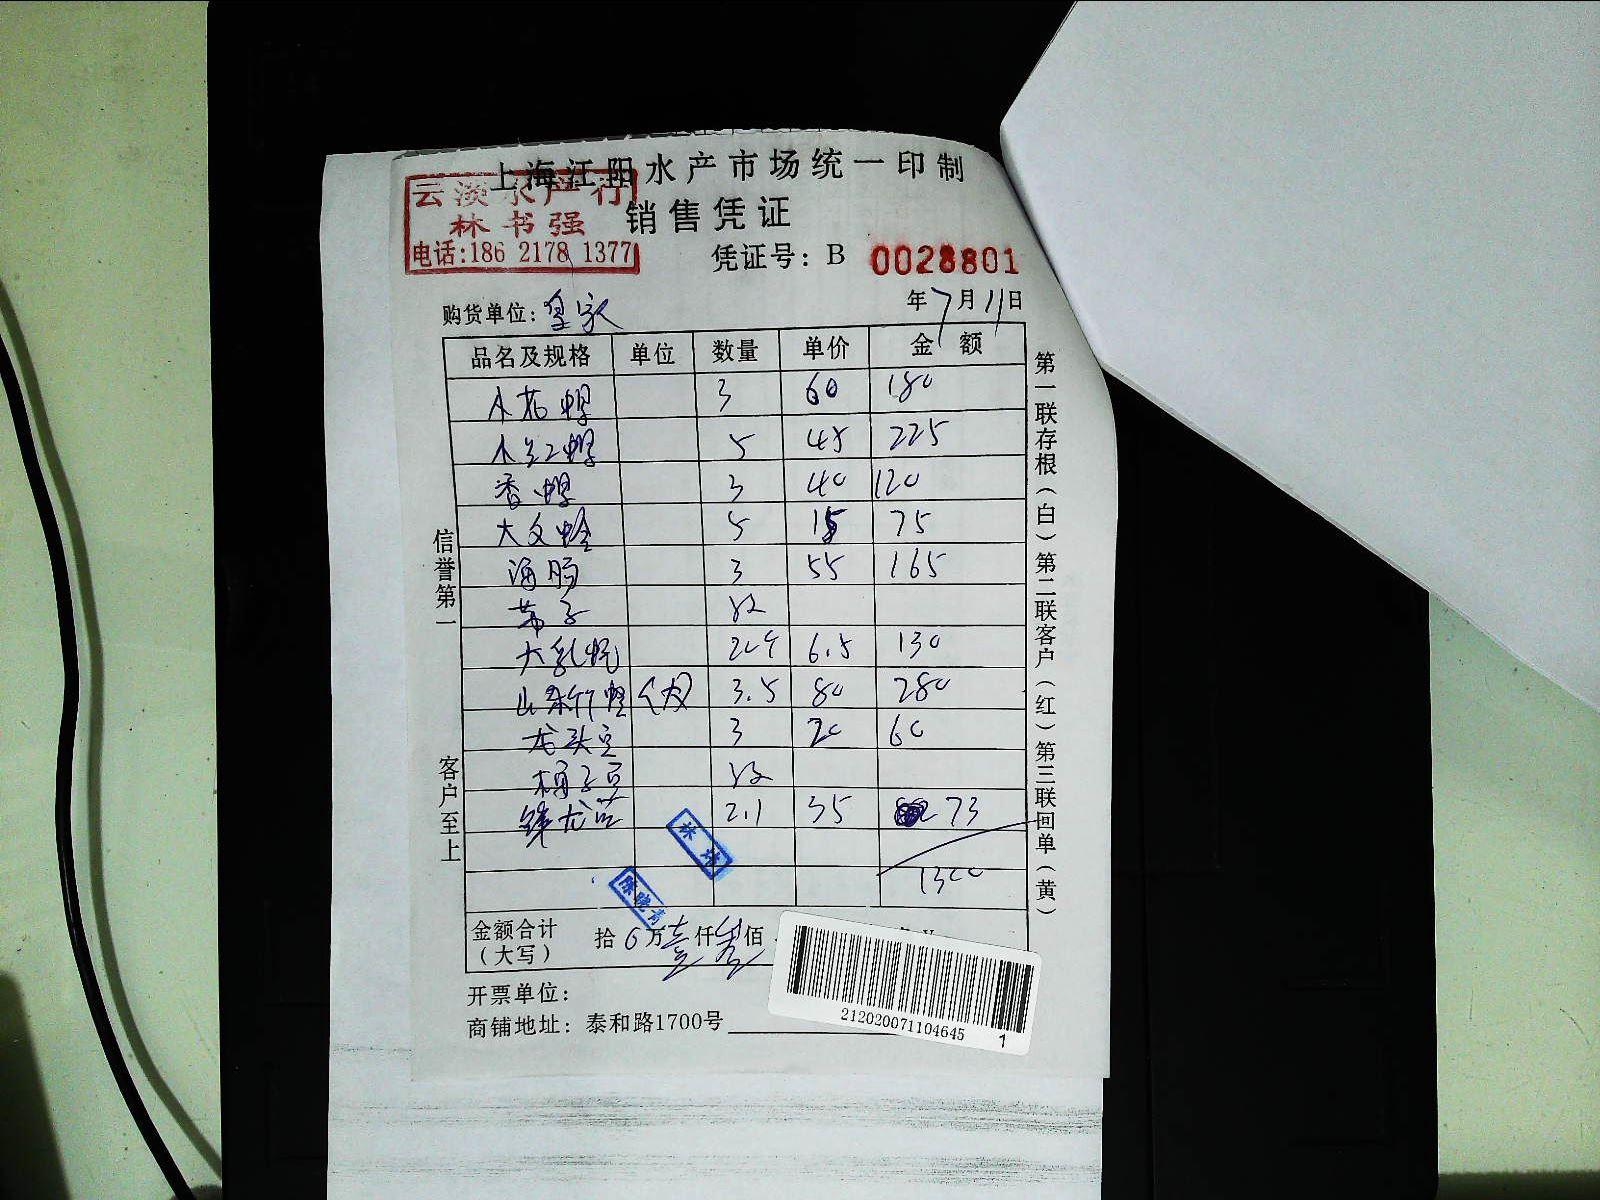 上海江阳水产市场统一印制
云淡水产行
林书强
电话:186 2178 1377
销售凭证
凭证号: B 0028801
购货单位: 皇家
年7月11日
品名及规格 单位 数量 单价 金额
小花螺 3 60 180
小红螺 5 45 225
香螺 3 40 120
大文蛤 5 15 75
海肠 3 55 165
带子 没
大乳蛏 20个 6.5 130
山东竹蛏 (大) 3.5 80 280
龙头 3 20 60
没
龙 2.1 35 73
1300
林
陈晓青
金额合计
(大写)
拾 0 万壹仟叁佰
开票单位:
商铺地址: 泰和路1700号
212020071104645
1
信誉第一
客户至上
第一联存根(白)第二联客户(红)第三联回单(黄)